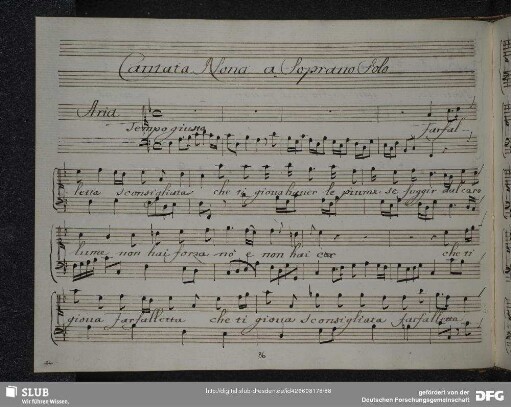 Cantata Nona a Soprano Solo
Aria
Tempo giusto
Farfal-
letta sconsigliata che ti giova haver le piume se fuggir dal caro
lume non hai forza nò e non hai cor che ti
giova farfalletta che ti giova sconsigliata farfalletta
SLUB
Wir führen Wissen.
gefördert von der
Deutschen Forschungsgemeinschaft
DFG